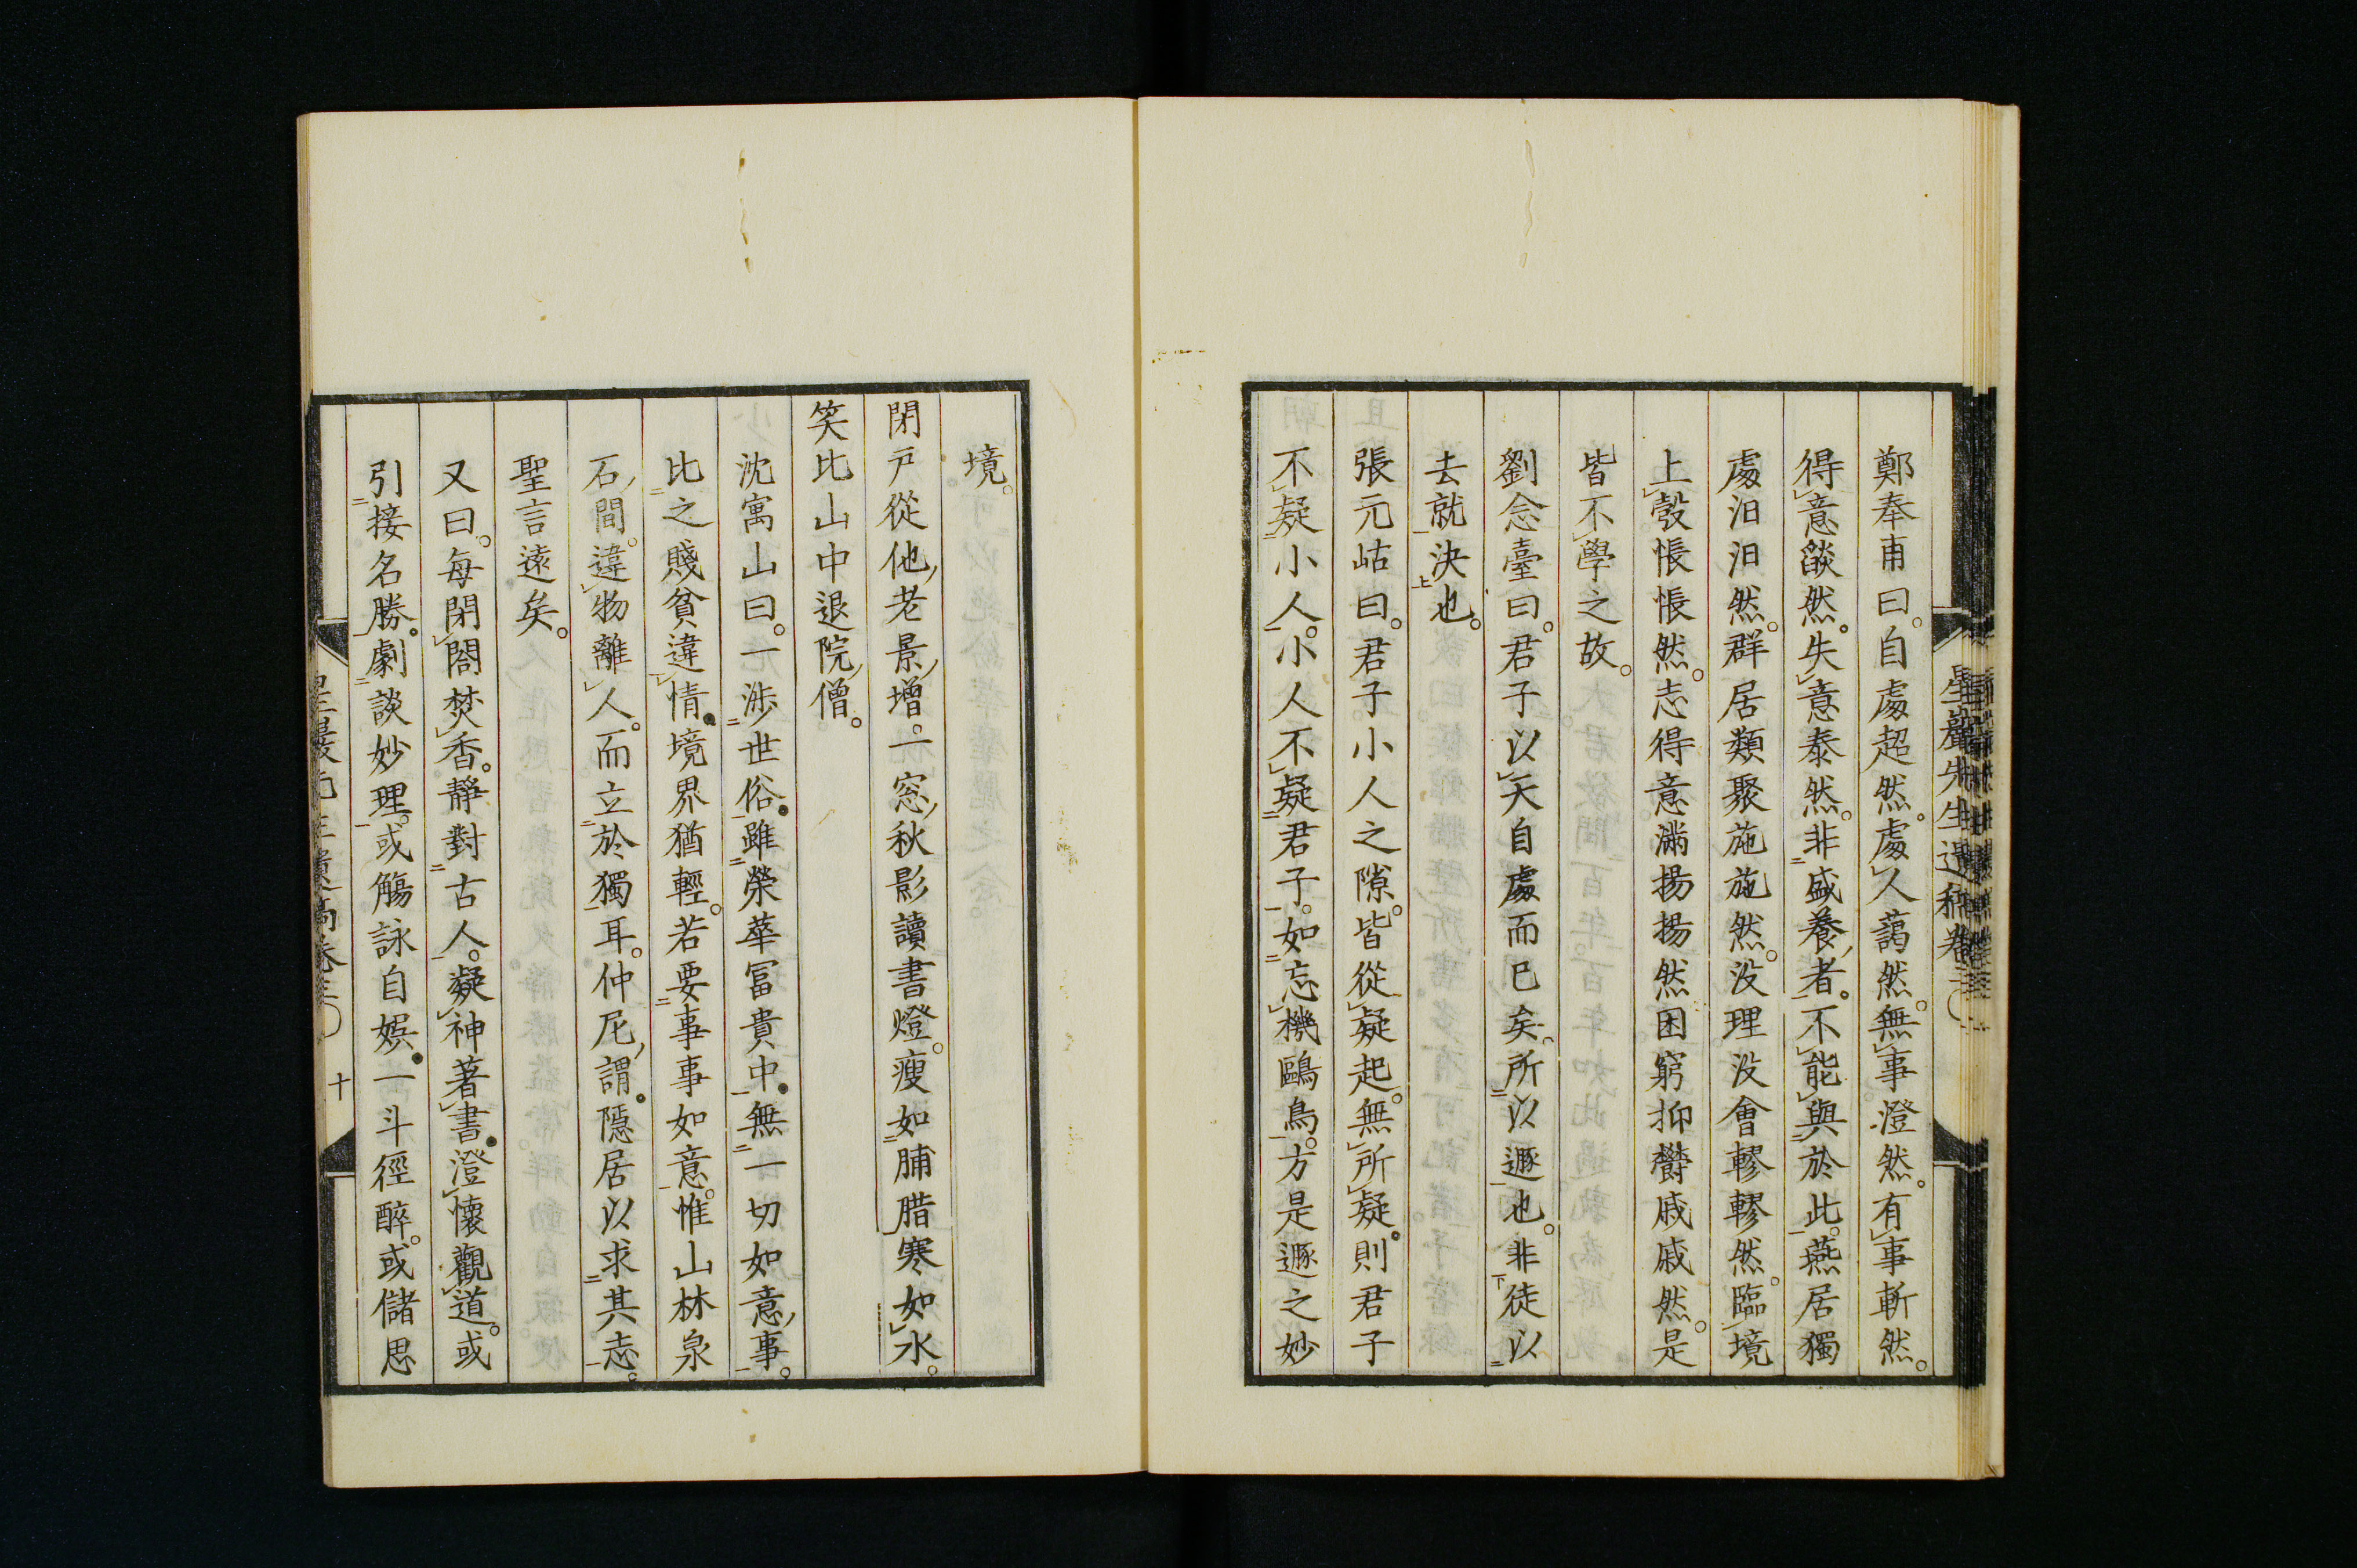 鄭奉甫曰。自處超然。處人藹然。無事澄然。有事斬然。
得意歛然。失意泰然。非盛養者。不能與於此。燕居獨
處汨汨然。群居類聚施施然。沒理沒會轇轇然。臨境
上彀悵悵然。志得意滿揚揚然困窮抑欝戚戚然。是
皆不學之故。
劉念臺曰。君子以天自處而已矣。所以遯也。非徒以
去就決也。
張元岵曰。君子小人之隙。皆從疑起。無所疑。則君子
不疑小人。小人不疑君子。如忘機鷗鳥。方是遯之妙
境。
閉戸從他老景增。一窓秋影讀書燈。瘦如脯腊寒如水。
笑比山中退院僧。
沈寓山曰。一渉世俗。雖榮華冨貴中。無一切如意事。
比之賤貧違情。境界猶輕。若要事事如意。惟山林泉
石間。違物離人。而立於獨耳。仲尼謂。隱居以求其志。
聖言遠矣。
又曰。毎閉閤焚香。靜對古人。凝神著書。澄懷觀道。或
引接名勝。劇談妙理。或觴詠自娯。一斗徑醉。或儲思
十